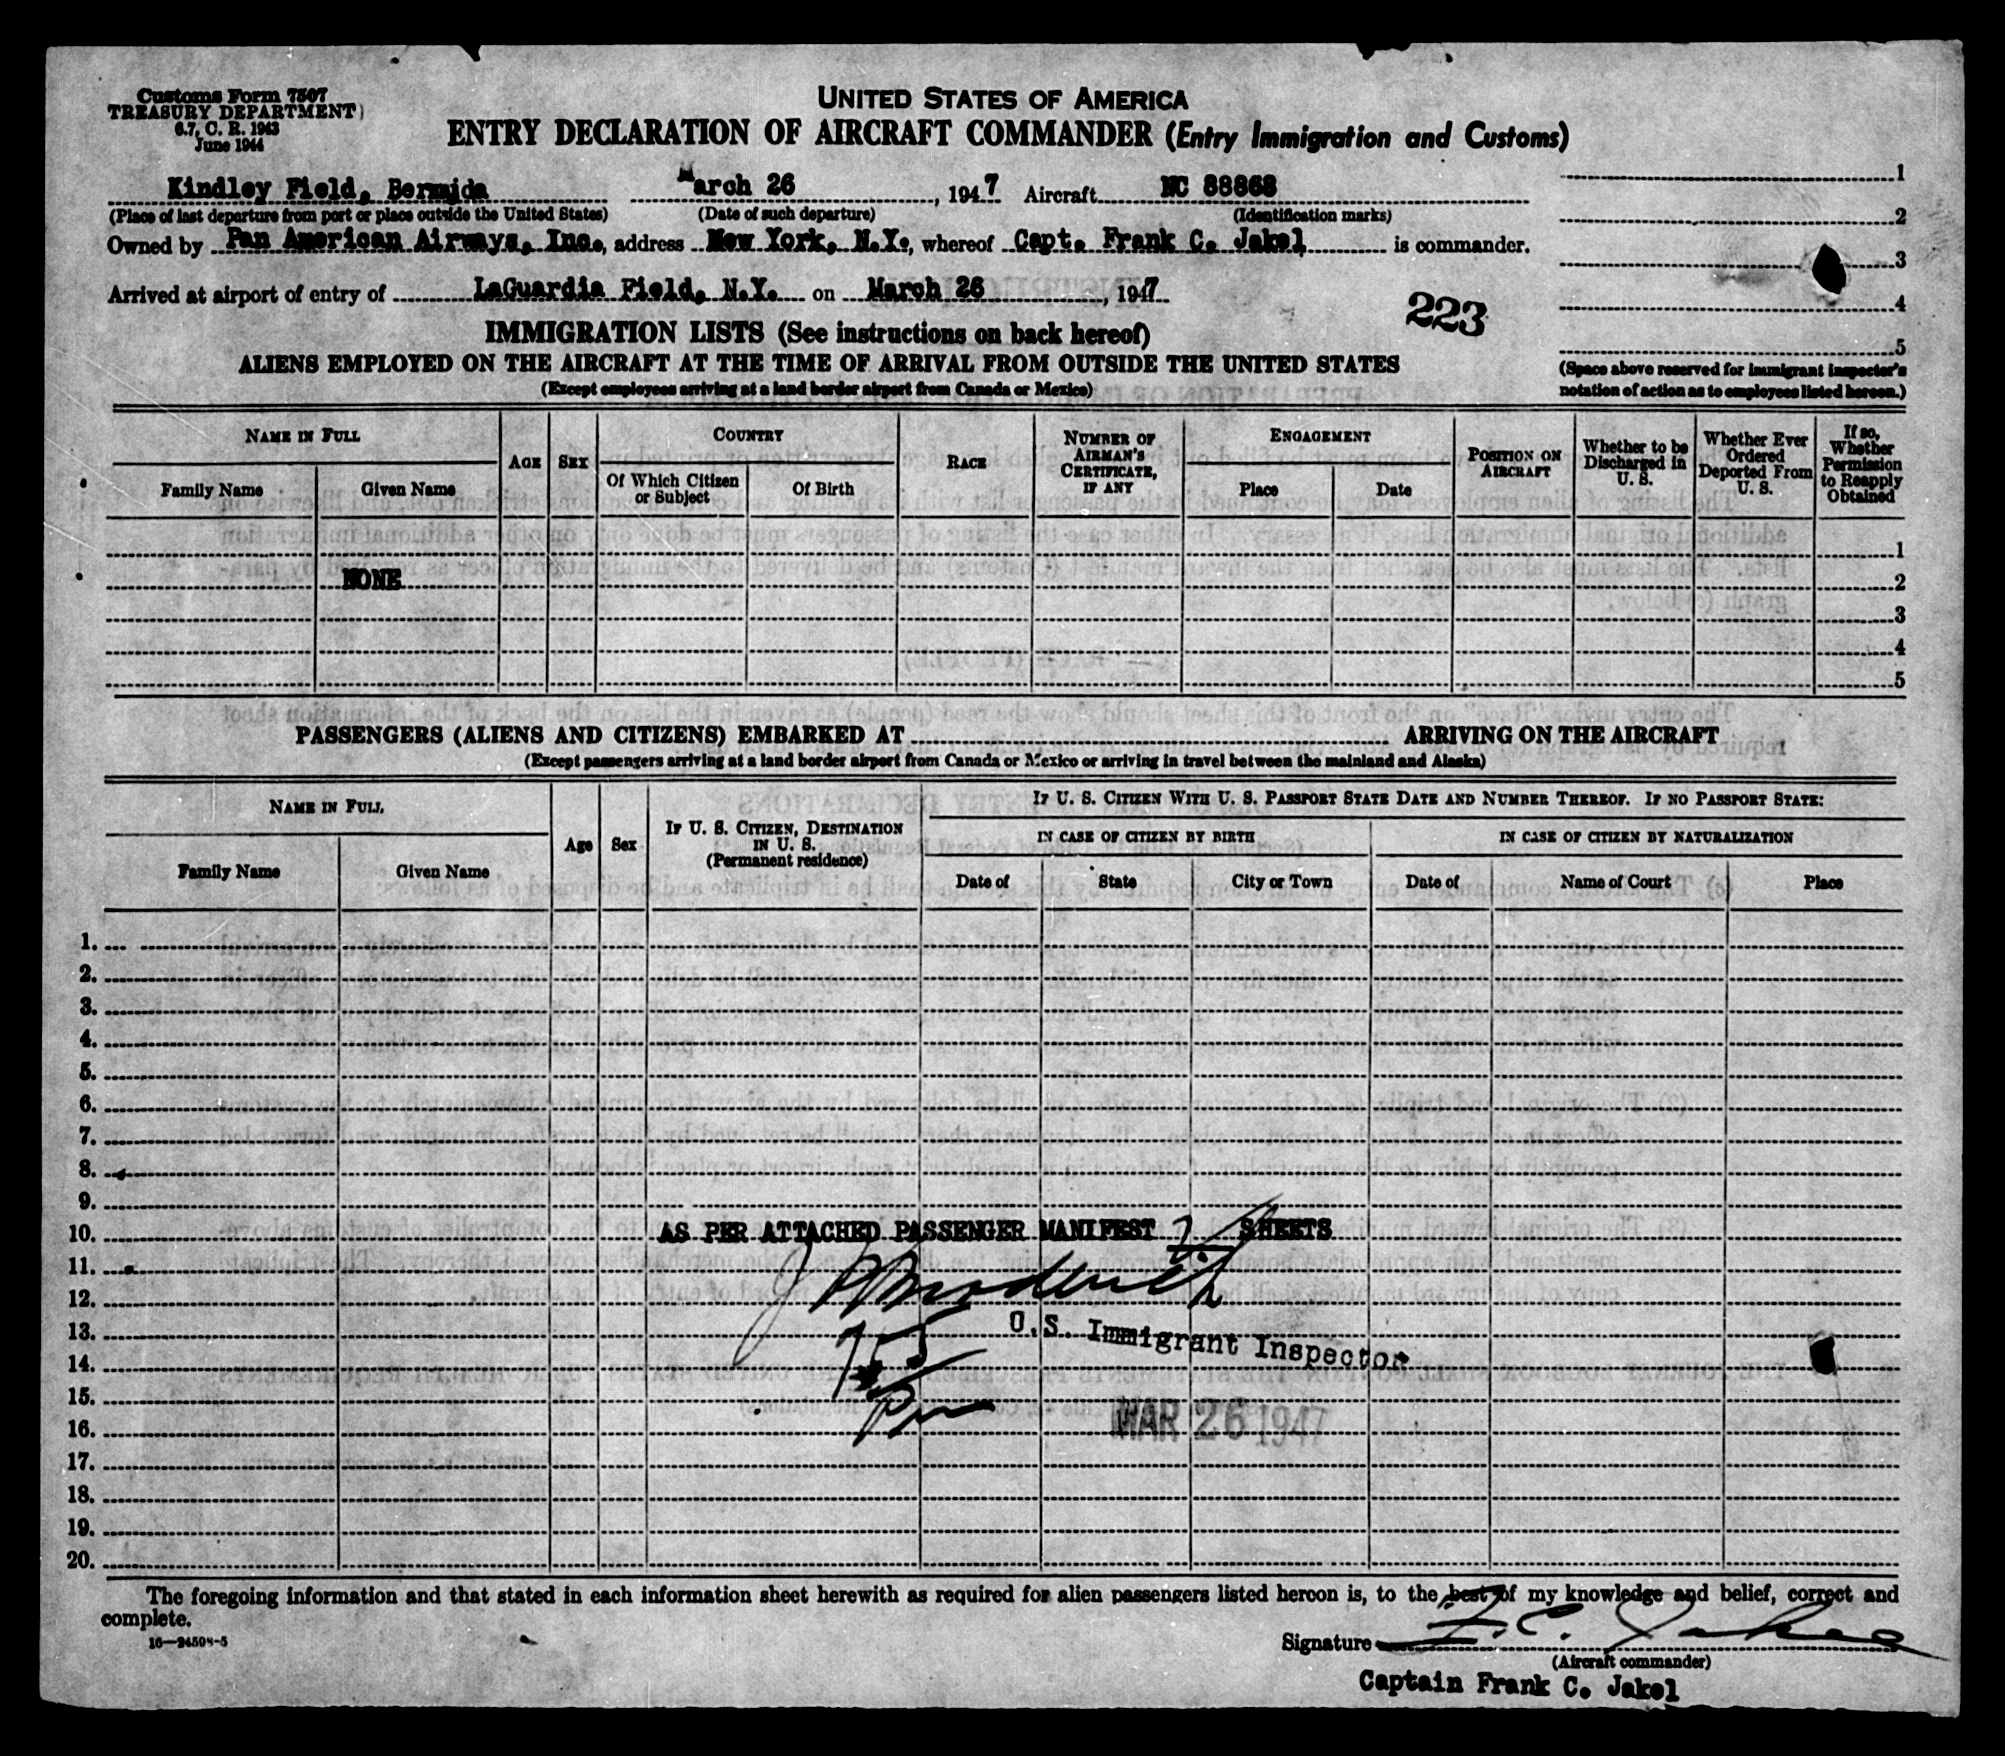 Customs Form 7507
TREASURY DEPARTMENT
6.7, C. R. 1943
June 1944
UNITED STATES OF AMERICA
ENTRY DECLARATION OF AIRCRAFT COMMANDER (Entry Immigration and Customs)
Kindley Field, Bermuda March 26, 1947 Aircraft NC 88868
(Place of last departure from port or place outside the United States) (Date of such departure) (Identification marks)
Owned by Pan American Airways, Inc., address New York, N.Y., whereof Capt. Frank C. Jakel is commander.
Arrived at airport of entry of LaGuardia Field, N.Y. on March 26, 1947
1
2
3
4
5
(Space above reserved for immigrant inspector's
notation of action as to employees listed hereon.)
223
IMMIGRATION LISTS (See instructions on back hereof)
ALIENS EMPLOYED ON THE AIRCRAFT AT THE TIME OF ARRIVAL FROM OUTSIDE THE UNITED STATES
(Except employees arriving at a land border airport from Canada or Mexico)
NAME IN FULL
Family Name
Given Name
AGE
SEX
COUNTRY
Of Which Citizen
or Subject
Of Birth
RACE
NUMBER OF
AIRMAN'S
CERTIFICATE,
IF ANY
ENGAGEMENT
Place
Date
POSITION ON
AIRCRAFT
Whether to be
Discharged in
U. S.
Whether Ever
Ordered
Deported From
U. S.
If so,
Whether
Permission
to Reapply
Obtained
1
NONE 2
3
4
5
PASSENGERS (ALIENS AND CITIZENS) EMBARKED AT ARRIVING ON THE AIRCRAFT
(Except passengers arriving at a land border airport from Canada or Mexico or arriving in travel between the mainland and Alaska)
NAME IN FULL
Family Name
Given Name
Age
Sex
IF U. S. CITIZEN, DESTINATION
IN U. S.
(Permanent residence)
IF U. S. CITIZEN WITH U. S. PASSPORT STATE DATE AND NUMBER THEREOF. IF NO PASSPORT STATE:
IN CASE OF CITIZEN BY BIRTH
IN CASE OF CITIZEN BY NATURALIZATION
Date of
State
City or Town
Date of
Name of Court
Place
1.
2.
3.
4.
5.
6.
7.
8.
9.
10. AS PER ATTACHED PASSENGER MANIFEST 2 SHEETS
11.
12.
13. U.S. Immigrant Inspector
14.
15.
16. MAR 26 1947
17.
18.
19.
20.
The foregoing information and that stated in each information sheet herewith as required for alien passengers listed hereon is, to the best of my knowledge and belief, correct and
complete.
16—24508-5
Signature F. C. Jakel
(Aircraft commander)
Captain Frank C. Jakel